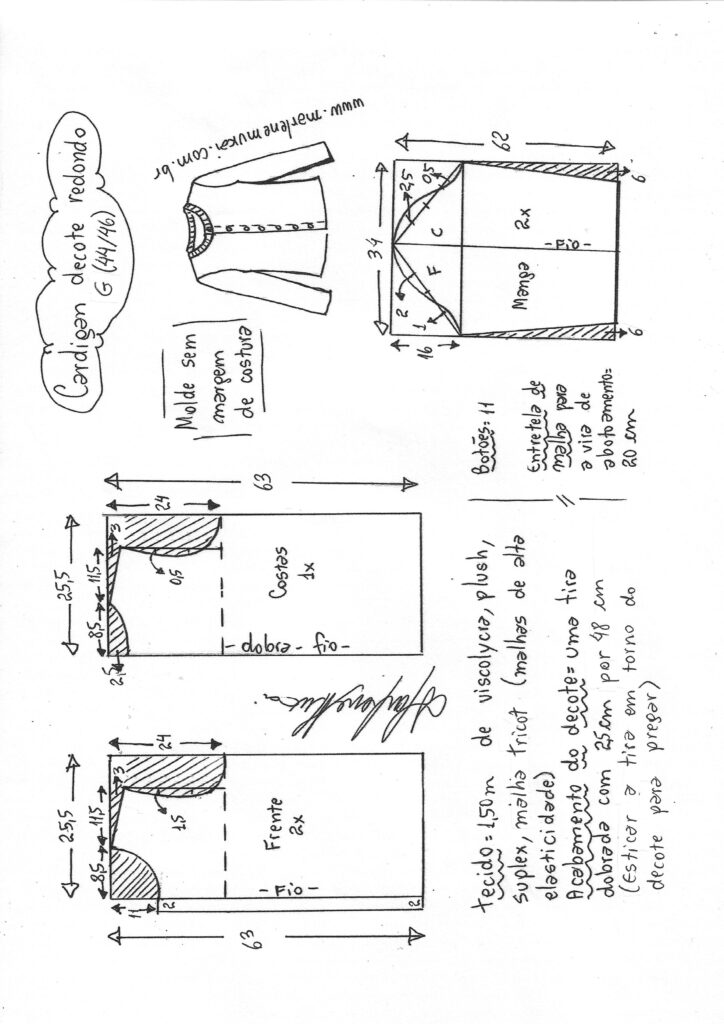 Cardigan decote redondo
G (44/46)
www.marlenemukai.com.br
Molde sem
margem
de costura
34
62
16
2
1
F
C
2,5
0,5
Manga
2x
-Fio-
6
6
25,5
8,5
11,5
3
24
63
2,5
0,5
Costas
1x
-dobra-fio-
25,5
8,5
11,5
3
24
63
11
1,5
Frente
2x
-Fio-
2
2
Botões=11
Entretela de
malha para
a vira de
abotoamento=
20 cm
Tecido=1,50m de viscolycra, plush,
suplex, malha tricot (malhas de alta
elasticidade)
Acabamento do decote= uma tira
dobrada com 2,5cm por 48 cm
(Esticar a tira em torno do
decote para pregar)